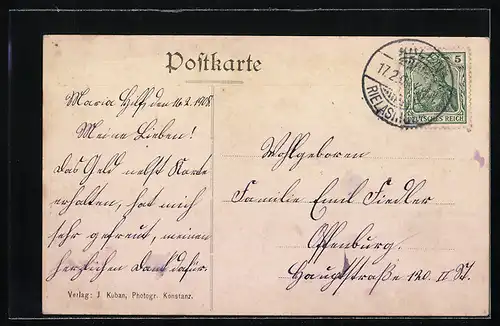 Postkarte
Maria Hilf, den 16.2.1908.
Meine Lieben!
Das Geld nebst Karte
erhalten, hat mich
sehr gefreut, meinen
herzlichen Dank dafür.
Verlag: J. Kuban, Photogr. Konstanz.
5
DEUTSCHES REICH
17.2
RIELASI
Wohlgeboren
Familie Emil Fiedler
Offenburg.
Hauptstraße 120. II St.